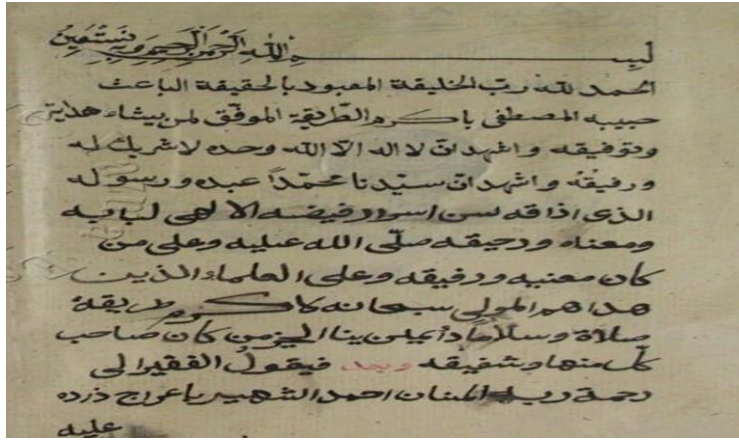 بسم الله الرحمن الرحيم وبه نستعين
الحمد لله رب الخليقة المعبود بالحقيقة الباعث
حبيبه المصطفى باكرم الطريقة الموفق لمن يشاء هدايته
وتوفيقه واشهد ان لا اله الا الله وحده لا شريك له
ورفيقه واشهد ان سيدنا محمدا عبده ورسوله
الذى اذاقه من اسرار فيضه الالهى لبابه
ومعناه ورحيقه صلى الله عليه وعلى من
كان معنيه ورفيقه وعلى العلماء الذين
هداهم المولى سبحانه كاكرم طريقة
صلاة وسلاما دائمين
كل منها وشفيقه وبعد فيقول الفقير الى
رحمة ربه المنان احمد الشهير
عليه